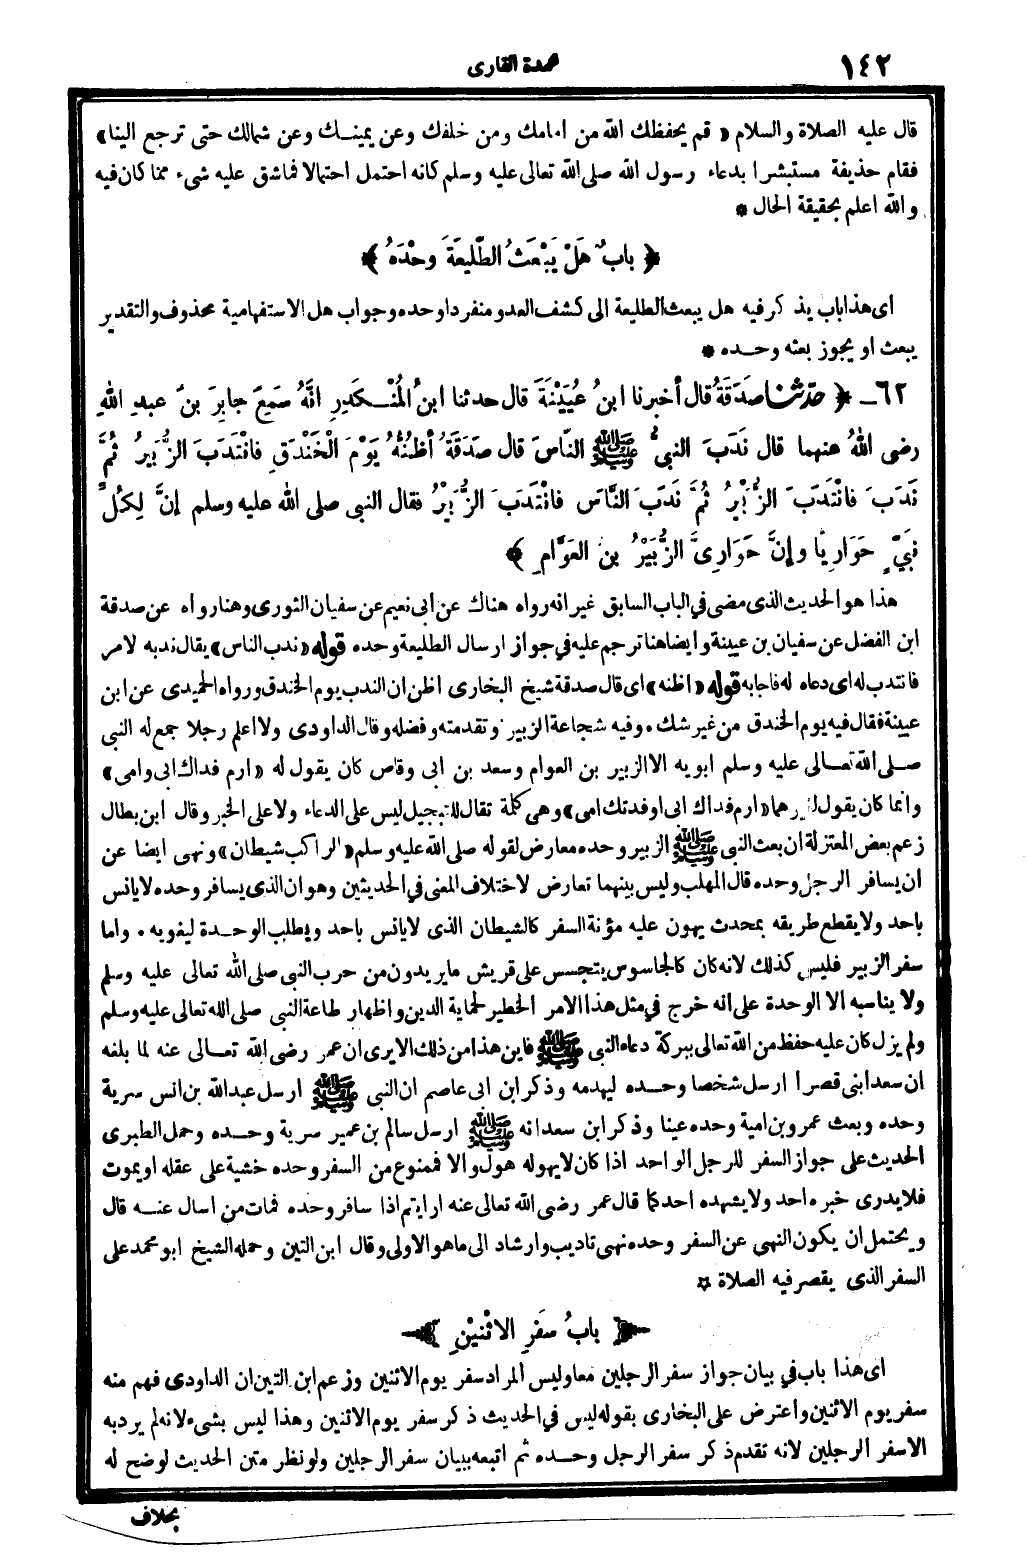 ١٤٢
عمدة القارى
قال عليه الصلاة والسلام « قم يحفظك الله من امامك ومن خلفك وعن يمينك وعن شمالك حتى ترجع الينا»
فقام حذيفة مستبشرا بدعاء رسول الله صلى الله تعالى عليه وسلم كانه احتمل احتمالا فماشق عليه شىء مما كان فيه
والله اعلم بحقيقة الحال *
﴿ بابٌ هَلْ يَبْعَثُ الطَّلِيعَةَ وحْدَهُ ﴾
اى هذا باب يذكر فيه هل يبعث الطليعة الى كشف العدو منفردا وحده وجواب هل الاستفهامية محذوف والتقدير
يبعث او يجوز بعثه وحده *
٦٢ - ﴿ حدّثنا صَدَقَةُ قال أخبرنا ابنُ عُيَيْنَةَ قال حدثنا ابنُ المُنْكَدِرِ انَّهُ سَمِعَ جابِرَ بنَ عبدِ اللهِ
رضى اللهُ عنهما قال نَدَبَ النبىُّ ﷺ النَّاسَ قال صَدَقَةُ أظُنُّهُ يَوْمَ الْخَنْدَقِ فانْتَدَبَ الزُّبَيرُ ثُمَّ
نَدَبَ فانْتَدَبَ الزُّبَيْرُ ثُمَّ نَدَبَ النَّاسَ فانْتَدَبَ الزُّبَيْرُ فقال النبى صلى الله عليه وسلم إنَّ لِكُلِّ
نَبِىٍّ حَوَارِيًّا وإنَّ حَوَارِىَّ الزُّبَيْرُ بنُ العَوَّامِ ﴾
هذا هو الحديث الذى مضى فى الباب السابق غير انه رواه هناك عن ابى نعيم عن سفيان الثورى وهنا رواه عن صدقة
ابن الفضل عن سفيان بن عيينة وايضا هنا ترجم عليه فى جواز ارسال الطليعة وحده قوله «ندب الناس» يقال ندبه لامر
فانتدب له اى دعاه له فاجابه قوله «اظنه» اى قال صدقة شيخ البخارى اظن ان الندب يوم الخندق ورواه الحميدى عن ابن
عيينة فقال فيه يوم الخندق من غير شك . وفيه شجاعة الزبير وتقدمته وفضله وقال الداودى ولا اعلم رجلا جمع له النبى
صلى الله تعالى عليه وسلم ابويه الا الزبير بن العوام وسعد بن ابى وقاص كان يقول له «ارم فداك ابى وامى»
وانما كان يقول لغيرهما «ارم فداك ابى او فدتك امى» وهى كلمة تقال للتبجيل ليس على الدعاء ولا على الخبر وقال ابن بطال
زعم بعض المعتزلة ان بعث النبى ﷺ الزبير وحده معارض لقوله صلى الله عليه وسلم «الراكب شيطان» ونهى ايضا عن
ان يسافر الرجل وحده قال المهلب وليس بينهما تعارض لاختلاف المعنى فى الحديثين وهو ان الذى يسافر وحده لا يانس
باحد ولا يقطع طريقه بمحدث يهون عليه مؤنة السفر كالشيطان الذى لا يانس باحد ويطلب الوحدة ليغويه . واما
سفر الزبير فليس كذلك لانه كان كالجاسوس يتجسس على قريش ما يريدون من حرب النبى صلى الله تعالى عليه وسلم
ولا يناسبه الا الوحدة على انه خرج فى مثل هذا الامر الخطير لحماية الدين واظهار طاعة النبى صلى الله تعالى عليه وسلم
ولم يزل كان عليه حفظ من الله تعالى ببركة دعاء النبى ﷺ فاين هذا من ذلك الا يرى ان عمر رضى الله تعالى عنه لما بلغه
ان سعدا بنى قصرا ارسل شخصا وحده ليهدمه وذكر ابن ابى عاصم ان النبى ﷺ ارسل عبدالله بن انس سرية
وحده وبعث عمرو بن امية وحده عينا وذكر ابن سعد انه ﷺ ارسل سالم بن عمير سرية وحده وحمل الطبرى
الحديث على جواز السفر للرجل الواحد اذا كان لا يهوله هول والا فممنوع من السفر وحده خشية على عقله او يموت
فلا يدرى خبره احد ولا يشهده احد كما قال عمر رضى الله تعالى عنه ارايتم اذا سافر وحده فمات من اسال عنه قال
ويحتمل ان يكون النهى عن السفر وحده نهى تاديب وارشاد الى ما هو الاولى وقال ابن التين وحمله الشيخ ابو محمد على
السفر الذى يقصر فيه الصلاة *
﴿ بابُ سَفَرِ الاثْنَيْنِ ﴾
اى هذا باب فى بيان جواز سفر الرجلين معا وليس المراد سفر يوم الاثنين وزعم ابن التين ان الداودى فهم منه
سفر يوم الاثنين واعترض على البخارى بقوله ليس فى الحديث ذكر سفر يوم الاثنين وهذا ليس بشىء لانه لم يرد به
الا سفر الرجلين لانه تقدم ذكر سفر الرجل وحده ثم اتبعه ببيان سفر الرجلين ولو نظر متن الحديث لوضح له
بخلاف